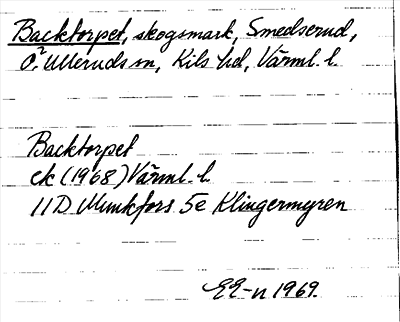 Backtorpet, skogsmark, Smedserud,
Ö. Ulleruds sn, Kils hd, Värml. l.
Backtorpet
ek (1968) Värml. l.
11D Munkfors 5e Klingermyren
EE-n 1969.